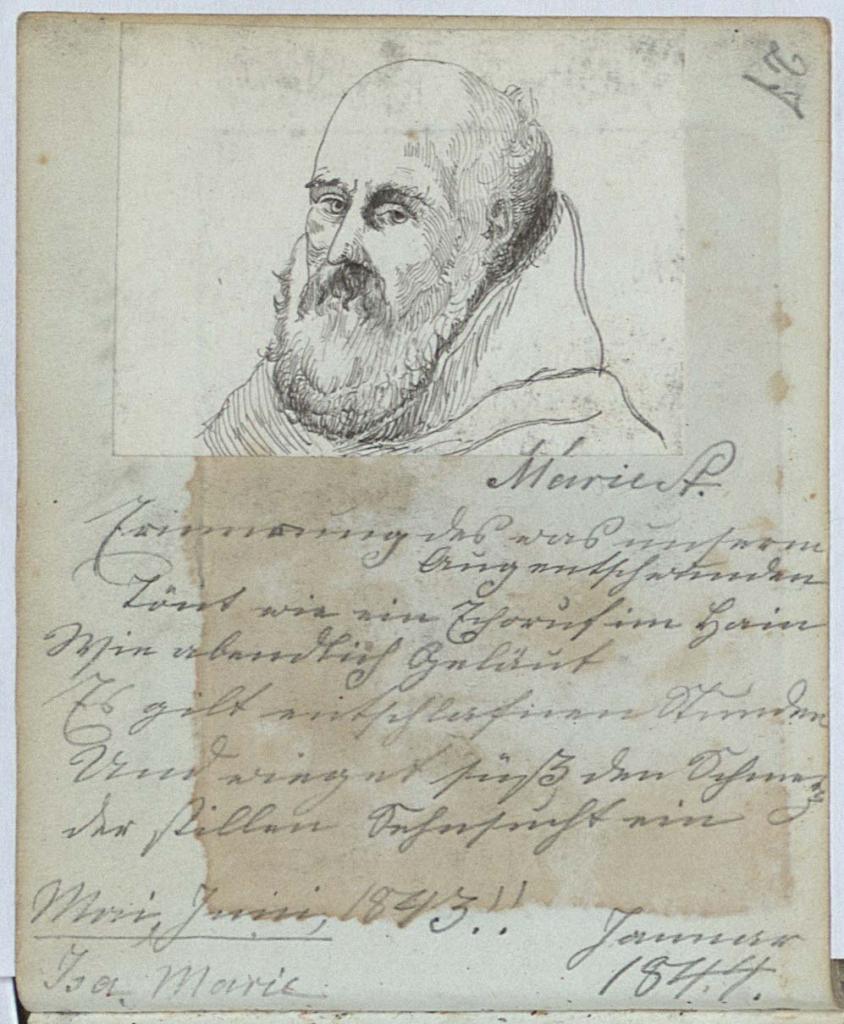 27
Marie A.
Erinnerung des was unserm
Aug entschwunden
Tönt wie ein Echoruf im Hain
Wie abendlich Geläut
Es gilt entschlafnen Stunden
Und wieget süß den Schmerz
der stillen Sehnsucht ein
Mai, Juni, 1843!!
Januar
1844.
Isa. Marie